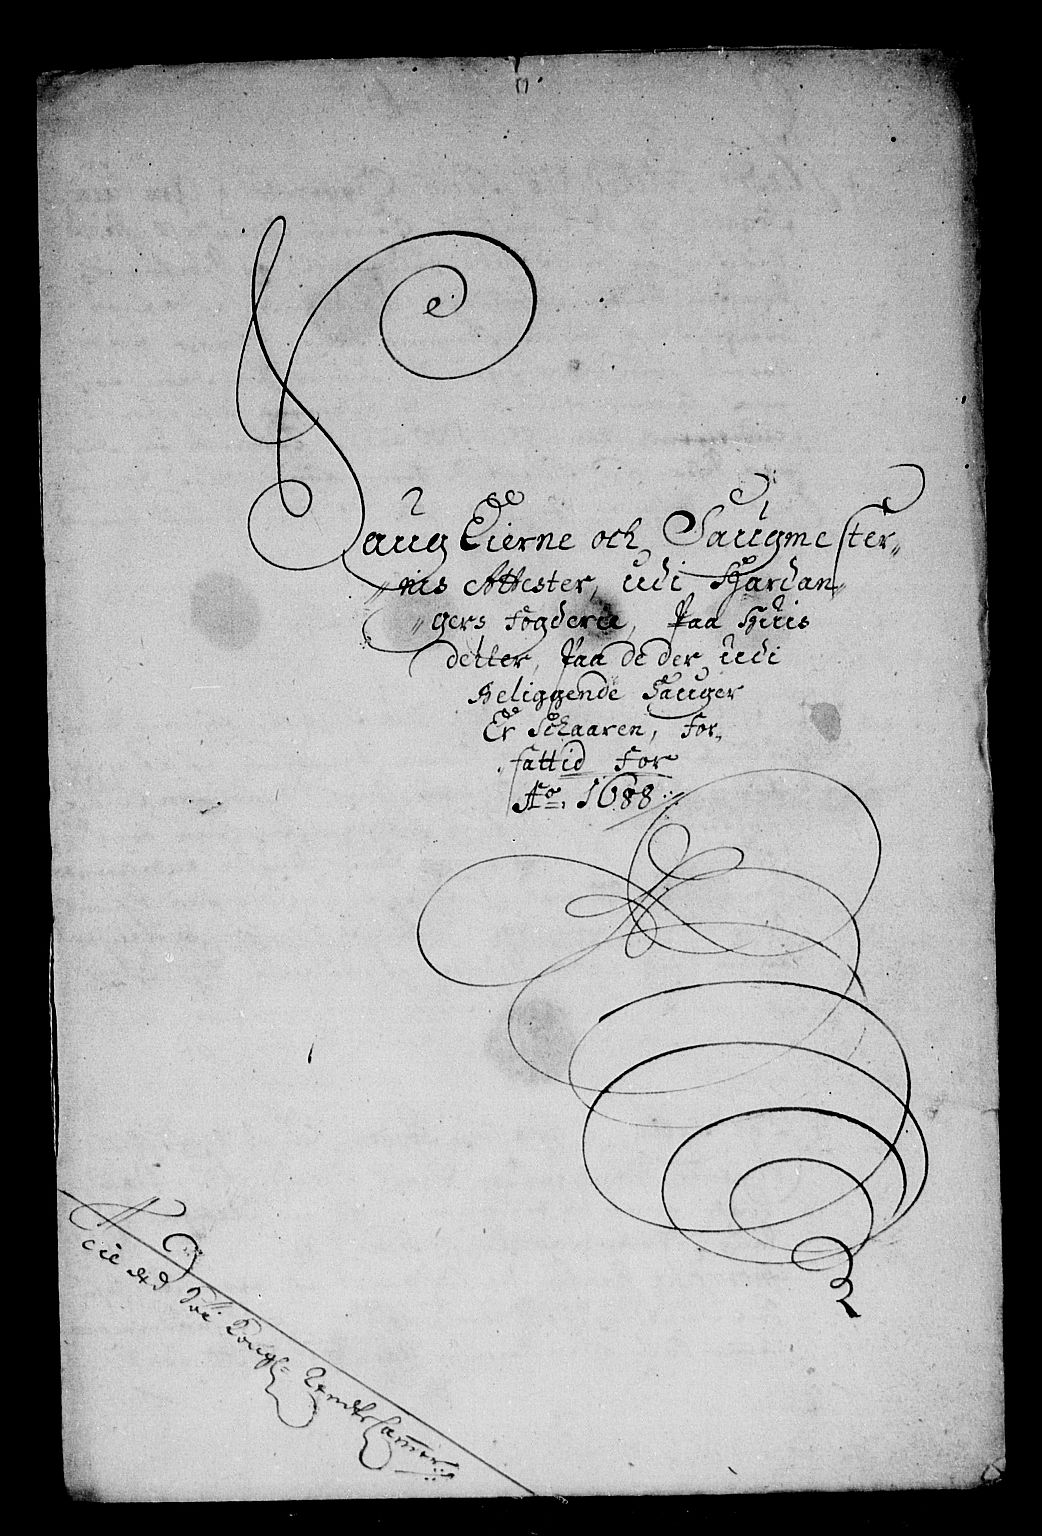 Saug Eierne och Saugmester„
„nis Attester, udi Hardan„
„gers Fogderie, Paa Huis
detter, Paa de der udi
Beliggende Sauger
Er Schaaren, For„
„fattid For
Ao. 1688
det Kongl: Rendte Cammer